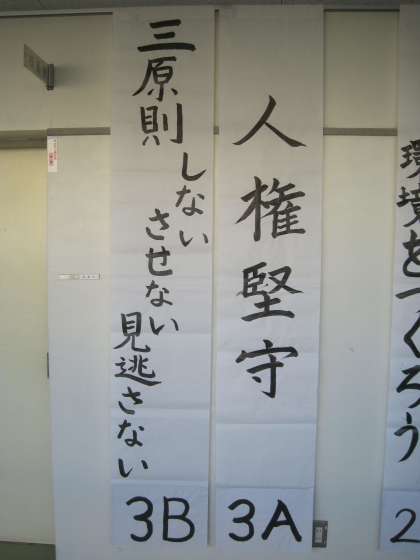 環境をつくろう
2
人権堅守
3A
三原則
しない
させない
見逃さない
3B